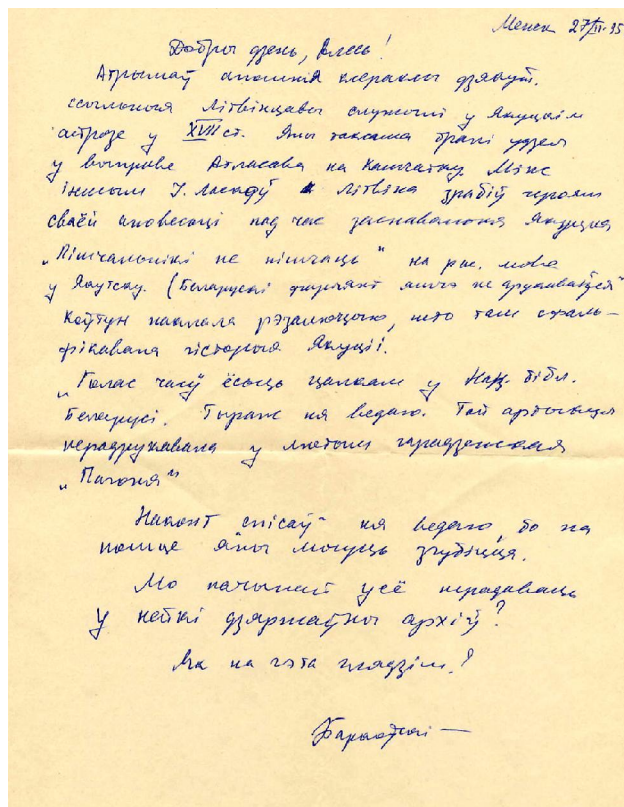 Менск 27/II-95
Добры дзень, Алесь!
Атрымаў апошнія ксераксы дзякуй.
ссыльныя Літвінцавы служылі у Якуцкім
астрозе у XVII ст. Яны таксама бралі удзел
у выправе Атласава на Камчатку Між
іншым І. Ласкоў Літвіна зрабіў героям
сваёй аповесьці пад час заснаваньня Якуцка
„Пішчальнікі не пішчаць" на рас. мове
у Якутску. (Беларускі фарыянт яшчэ не друкаваўся"
Коўтун наклала рэзалюцыю, што там сфаль-
фікавана гісторыя Якуціі.
„Голас часу ёсьць цалкам у Нац. бібл.
Беларусі. Тыраж ня ведаю. Той артыкул
перадрукавана у лютым гарадзенская
„Пагоня"
Наконт спісаў ня ведаю, бо на
пошце яны могуць згубіцца.
Мо пачынай усё перадаваць
у нейкі дзяржаўны архіў?
на гэта глядзіш?
Бараўскі